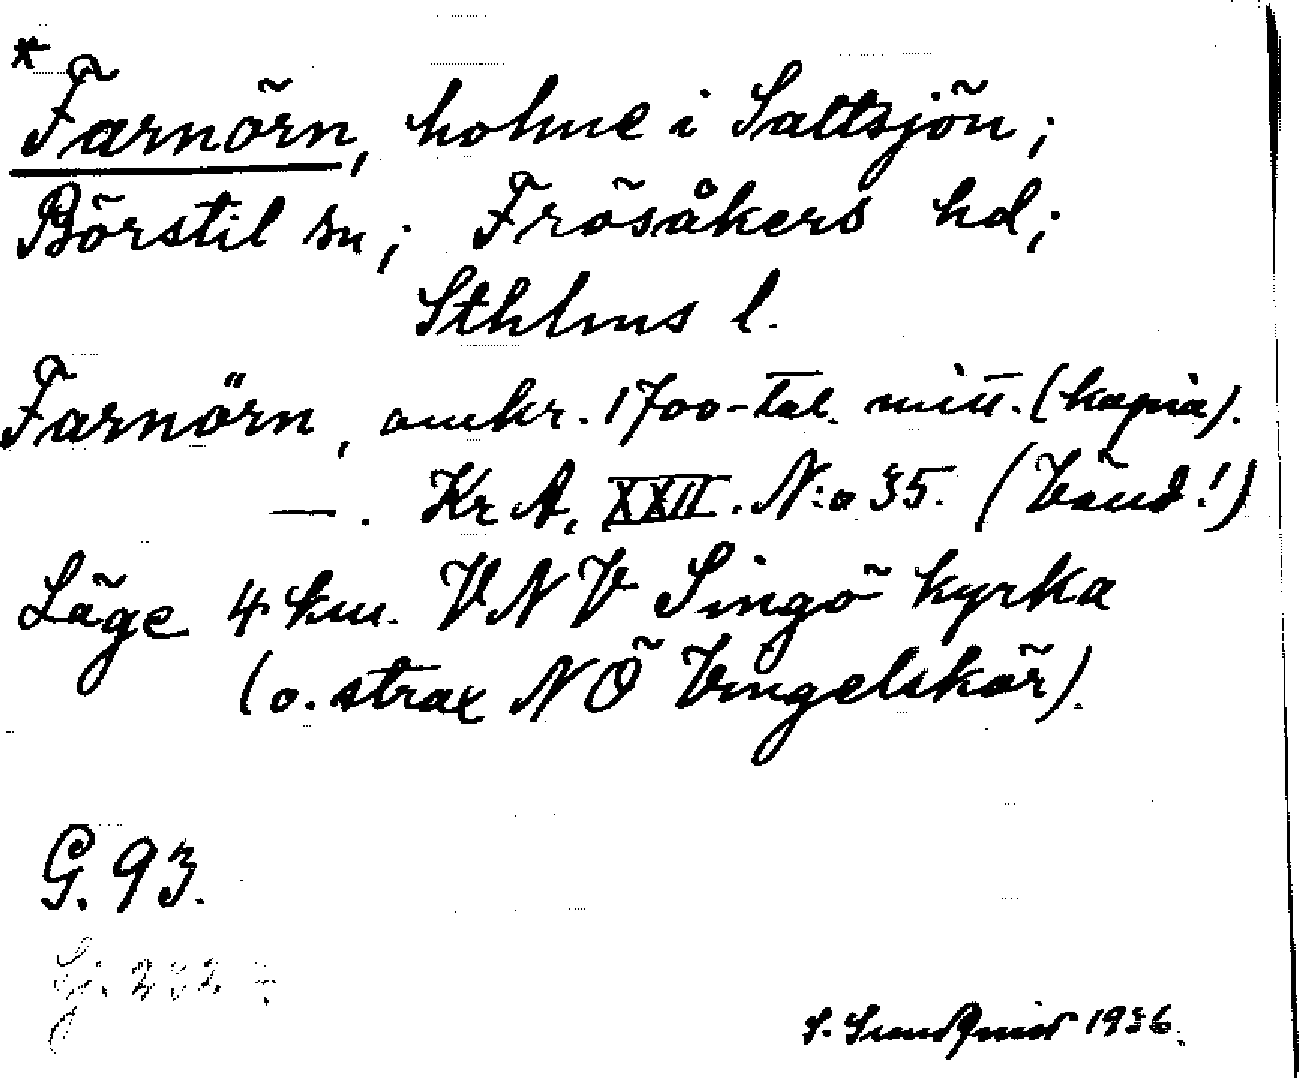 * Farnörn, holme i Saltsjön;
Börstil sn; Frösåkers hd;
Sthlms l.
Farnörn, omkr. 1700-tal. mitt. (kopia).
—. Kr A, XXII. N:o 35. (Vänd!)
Läge 4 km. VNV Singö kyrka
(o. strax NÖ Vingelskär).
G. 93.
S. Sundqvist 1936.